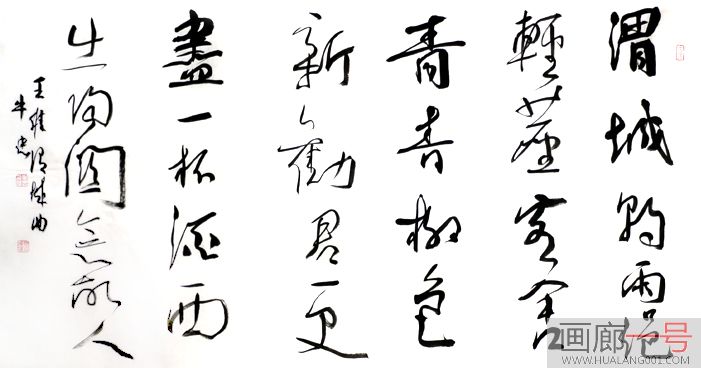 渭城朝雨浥
輕塵客舍
青青柳色
新勸君更
盡一杯酒西
出陽關無故人
王維渭城曲
牛忠
画廊一号
WWW.HUALANG001.COM